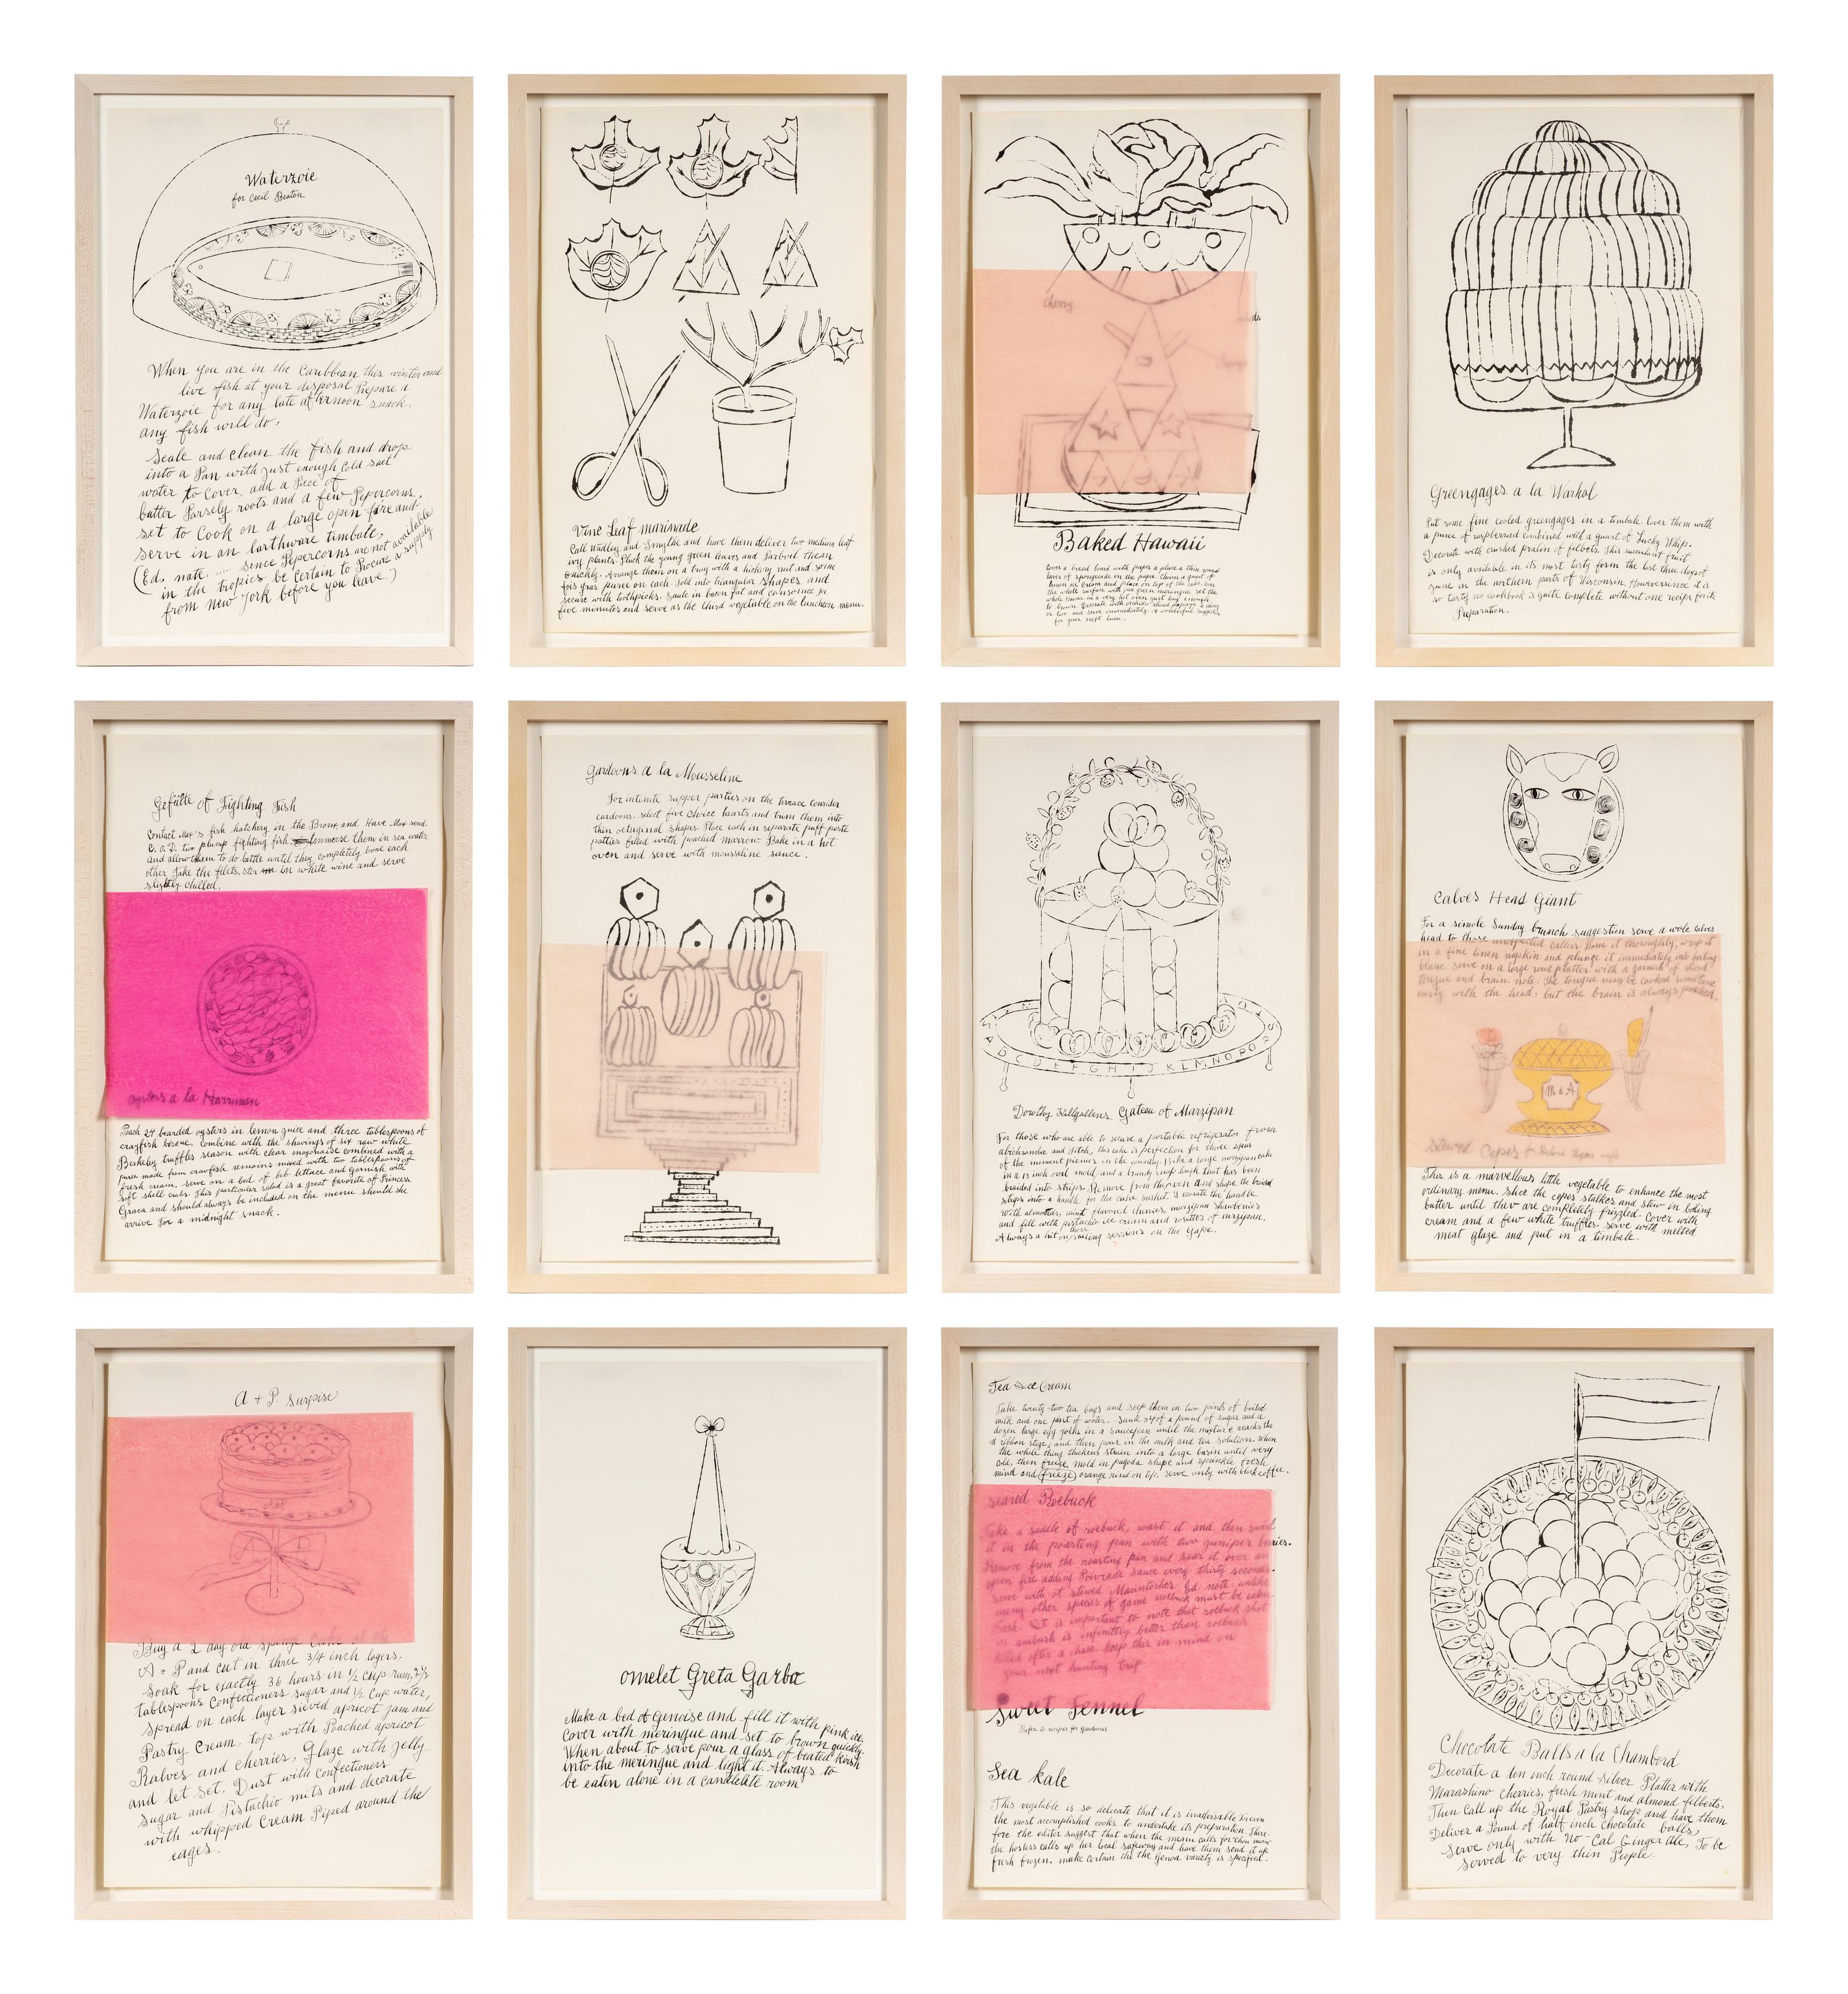 Waterzoie
for Cecil Beaton
When you are in the Caribbean this winter and
live fish at your disposal Prepare a
Waterzoie for any late afternoon snack.
any fish will do.
Scale and clean the fish and drop
into a Pan with just enough Cold salt
water to Cover, add a Piece of
butter Parsely roots and a few Pepercorns.
set to Cook on a large open fire and
serve in an earthware timbale,
(Ed. note ..... Since Pepercorns are not available
in the tropics be certain to Procure a supply
from New York before you leave.)
Vine Leaf marinade
Call Hadley and Smythe and have them deliver two medium leaf
ivy plants. Pluck the young green leaves and Parboil them
quickly. Arrange them on a tray with a hickory nut and some
fois gras puree on each. fold into triangular shapes and
secure with toothpicks. Saute in bacon fat and consomme for
five minutes and serve as the third vegetable on the luncheon menu.
Cherry
Baked Hawaii
Cover a bread board with paper & place a thin round
layer of spongecake on the paper. Churn a quart of
ice cream and place on top of the cake. Cover
the whole surface with pea green meringue. set the
whole Hawaii in a very hot oven just long enough
to brown. Decorate with orchids sliced papaya a cherry
or two and serve immediately. A wonderful supper
for your next luau.
Greengages a la Warhol
Put some fine cooled greengages in a timbale. Cover them with
a puree of raspberries combined with a quart of Lucky Whip.
Decorate with crushed pralin of filberts. This succulent fruit
is only available in its most tasty form the last three days of
june in the northern parts of Wisconsin. However since it is
so tasty no cookbook is quite complete without one recipe for its
Preparation.
Gefülte of Fighting Fish
Contact Max's fish hatchery in the Bronx and Have Max send
C.O.D. two plump fighting fish. Immerse them in sea water
and allow them to do battle until they completely bone each
other. Take the filets, stew in white wine and serve
slightly chilled.
oysters a la Harriman
Poach 24 bearded oysters in lemon juice and three tablespoons of
crayfish bisque. Combine with the shavings of six raw white
Berkeley truffles season with clear mayonaise combined with a
puree made from crawfish remains mixed with two tablespoons of
fresh cream. serve on a bed of bib lettuce and garnish with
soft shell crabs. This particular salad is a great favorite of Princess
Graca and should always be included on the menu should she
arrive for a midnight snack.
Gardoons a la Mousseline
For intimite supper parties on the terrace consider
cardoons. select five choice hearts and turn them into
thin octaginal shapes. Place each in separate puff paste
patties filled with poached marrow. Bake in a hot
oven and serve with mousseline sauce.
A B C D E F G H I J K L M N O P Q R S
Dorothy Killgallens Gateau of Marzipan
For those who are able to secure a portable refrigerator from
abichrombie and fitch, this cake is perfection for those spur
of the moment picnics in the country. Make a large marzipan cake
in a 12 inch oval mold, and a brandy snap laugh that has been
braided into strips. Remove from the oven and shape the braided
strips into a handle for the cake basket. Decorate the handle
With almottas, mint flavored cherries, marzipan strawberries
and fill with pistachio ice cream and rosittes of marzipan.
Always a hit on those sailing sessions on the Cape.
Calves Head Giant
For a simple Sunday brunch suggestion serve a whole calves
head to those unexpected callers. Bone it thoroughly, wrap it
in a fine linen napkin and plunge it immediately into boiling
blanc. serve on a large round platter with a garnish of sliced
tongue and brain. note: The tongue may be cooked simultane
ously with the head, but the brain is always poached.
M & A
Stewed Cepes
This is a marvellous little vegetable to enhance the most
ordinary menu. slice the cepes stalkes and stew in boking
butter until thev are completely frizzled. Cover with
cream and a few white truffles. serve with melted
meat glaze and put in a timbale.
A + P Surpise
A + P
A P
Buy a 2 day old sponge Cake at the
A + P and cut in three 3/4 inch layers.
Soak for exactly 36 hours in 1/2 cup rum, 2 1/2
tablespoons Confectioners sugar and 1/2 Cup water,
spread on each layer sieved apricot jam and
Pastry Cream, top with Poached apricot
Halves and cherries, Glaze with jelly
and let set. Dust with Confectioners
sugar and Pistachio nuts and decorate
with whipped Cream Piped around the
edges.
omelet Greta Garbo
Make a bed of Genoise and fill it with pink ice.
Cover with meringue and set to brown quickly.
When about to serve pour a glass of heated kirsh
into the meringue and light it. Always to
be eaten alone in a candlelite room
Tea Ice Cream
Take twenty-two tea bags and seep them in two pints of boiled
milk and one pint of water. Saute 3/4 of a pound of sugar and a
dozen large egg yolks in a saucepan until the mixture reaches the
ribbon stage, and then pour in the milk and tea solution. When
the whole thing thickens strain into a large basin until very
cold, then freeze. mold in pagoda shape and sprinkle fresh
mind and (freeze) orange rind on top. serve only with black coffee.
seared Roebuck
Take a saddle of roebuck, roast it and then swirl
it in the roasting pan with two juniper berries.
Remove from the roasting pan and sear it over an
open fire adding Poivrade sauce every thirty seconds.
Serve with ot stewed Macintoshes. Ed. note, unlike
many other species of game roebuck must be eaten
fresh. It is important to note that roebuck shot
in ambush is infinitely better than roebuck
killed after a chase. keep this in mind on
your next hunting trip.
Sweet Fennel
Refer to recipes for gardoons
Sea kale
This vegetable is so delicate that it is inadvisable for even
the most accomplished cooks to undertake its preparation. There-
fore the editor suggest that when the menu calls for chou marin
the hostess calls up her local safeway and have them send it up
fresh frozen. make certain the the Genoa variety is specified.
Chocolate Balls a la Chambord
Decorate a ten inch round silver Platter with
Marashino cherries, fresh mint and almond filberts,
Then Call up the Royal Pastry shop and have them
Deliver a Pound of half inch Chocolate balls,
serve only with No-Cal Ginger Ale. To be
served to very thin People.